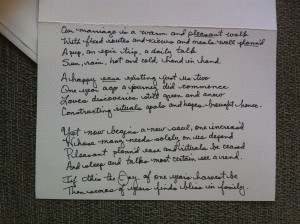 Our marriage is a warm and pleasant walk
With fixed routes and views and meals well plann'd
A pup, an epic trip, a daily talk
Sun, rain, hot and cold, hand in hand.
A happy verse existing just us two
One year ago a journey did commence
Loves discoveries still green and anew
Constructing rituals and hopes, brought chance.
Yet now begins a new soul, one increas'd
Whose many needs solely on us depend
Pleasant plann'd ease and rituals be ceased
And sleep and talks most certain see a rend.
If this the Day of one years harvest be
Then scores of years finds bliss in family.